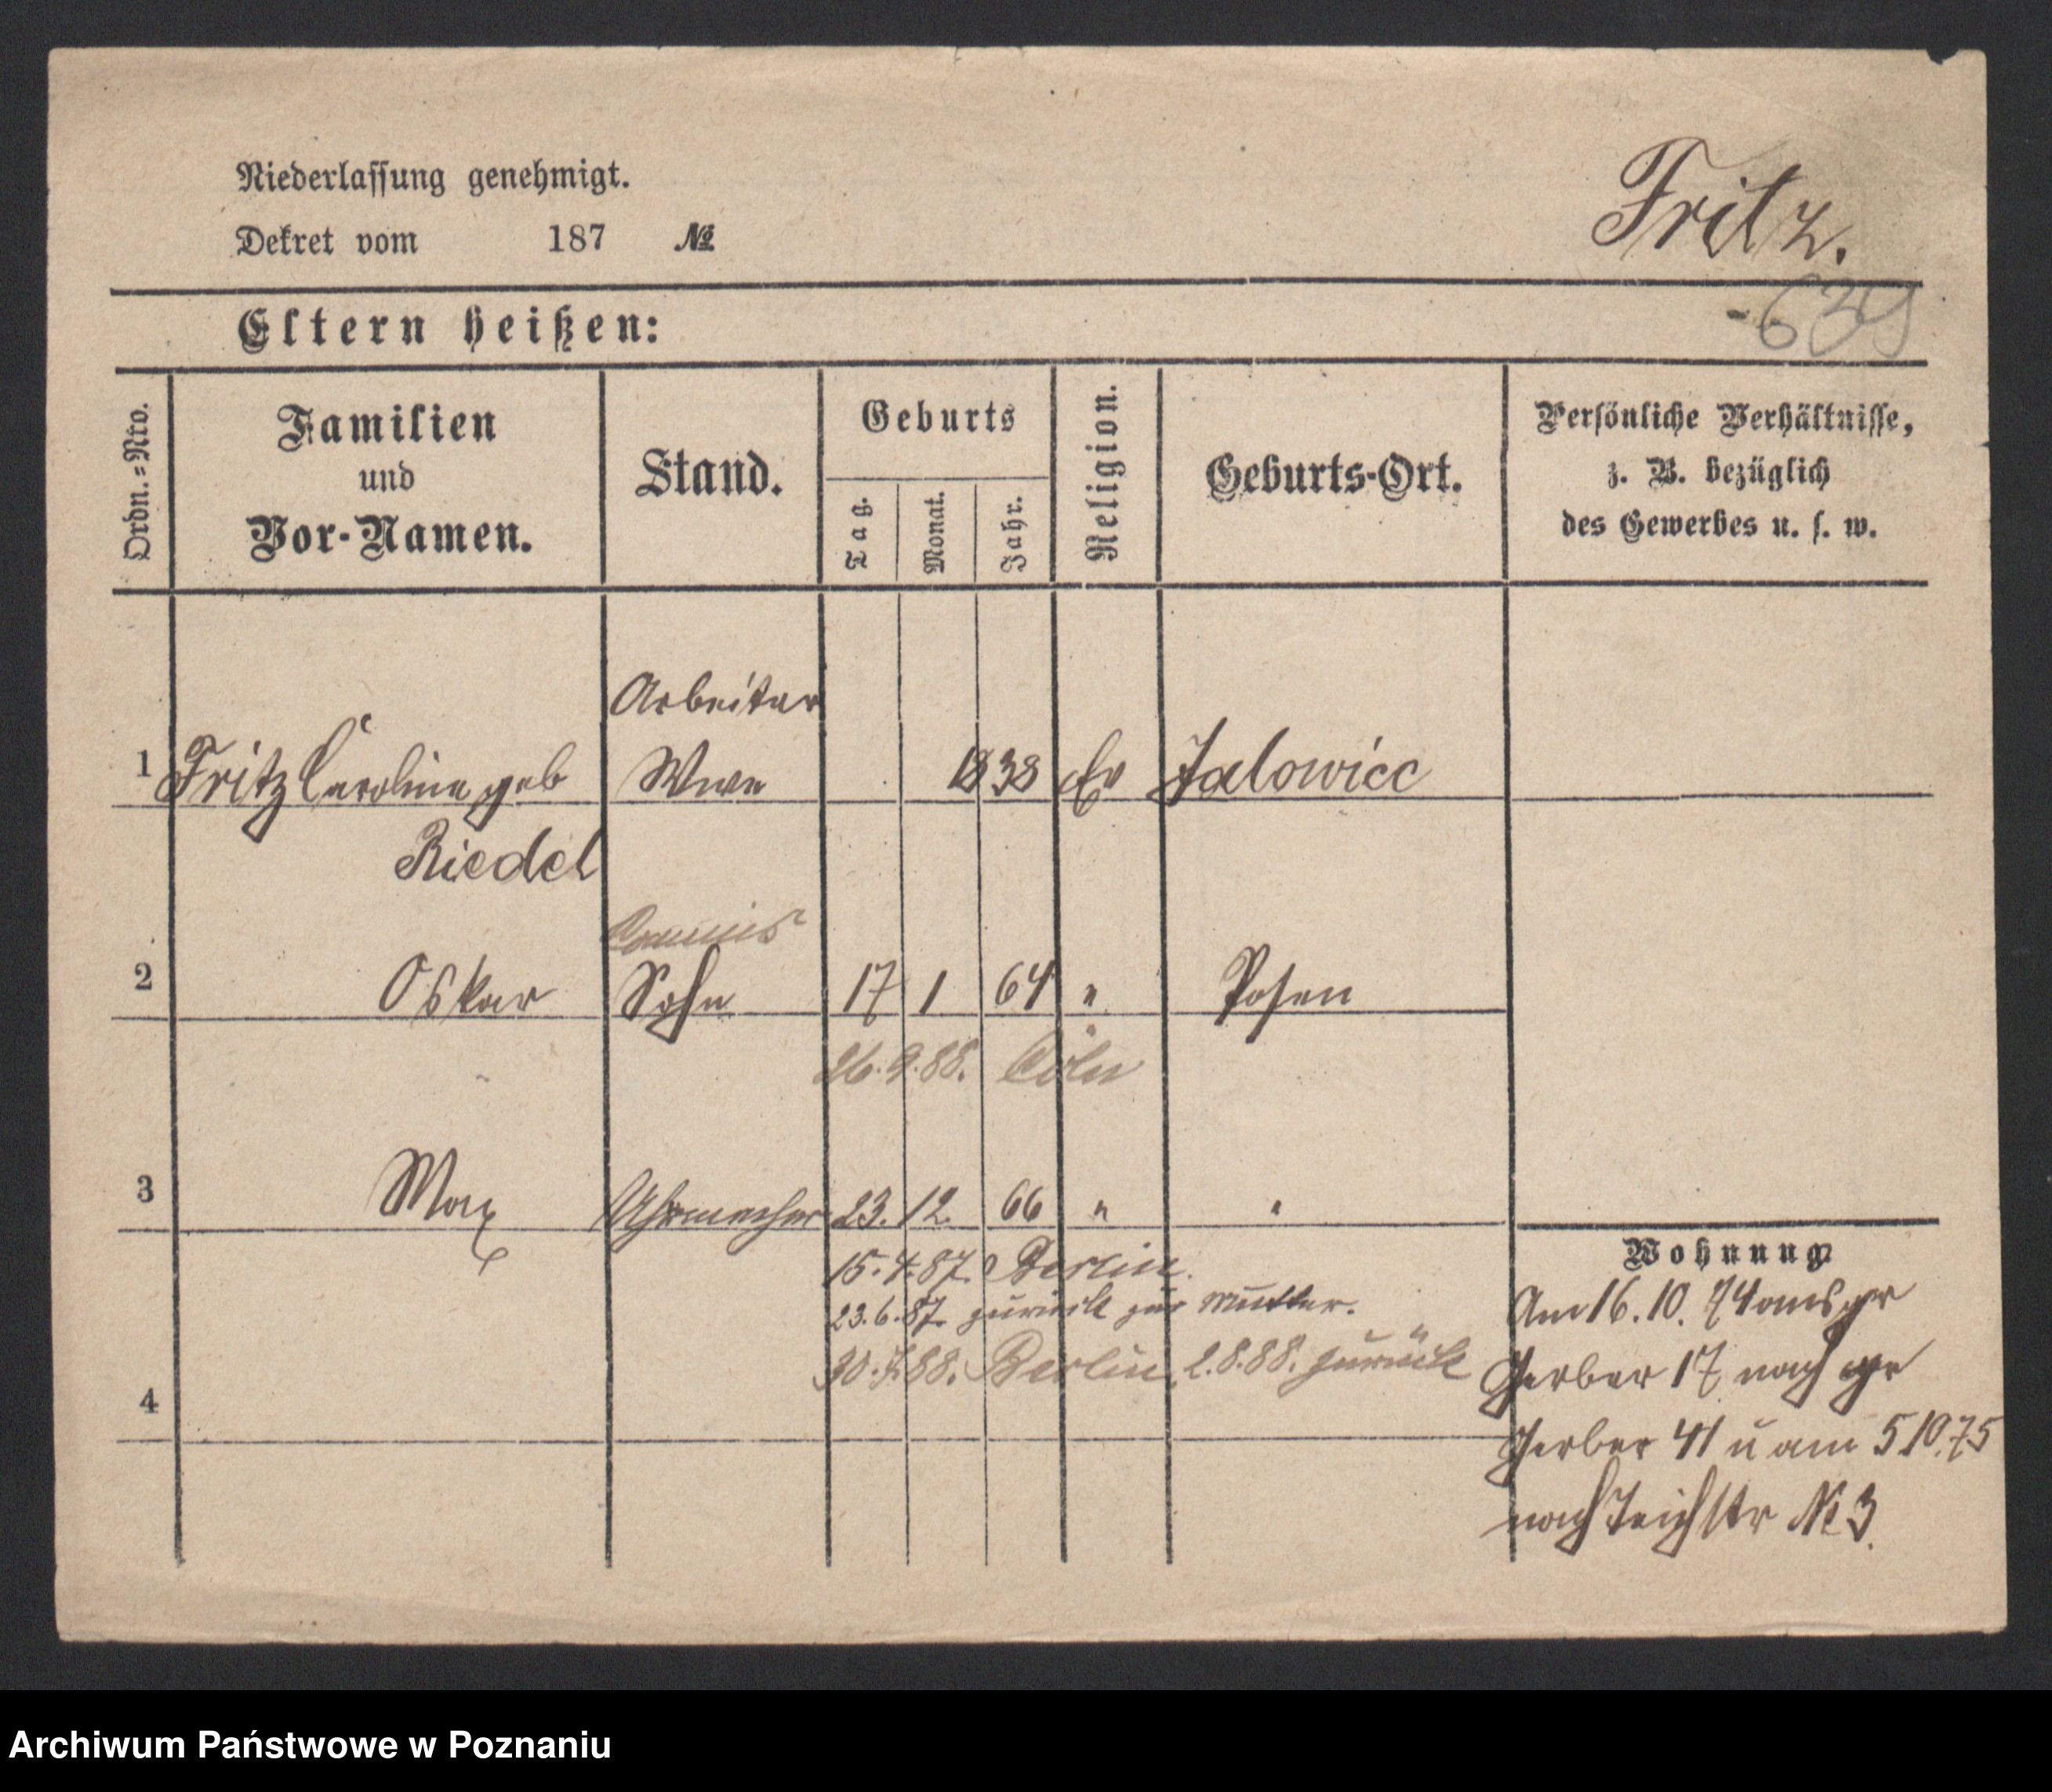 Niederlassung genehmigt.
Dekret vom 187 №
Fritz.
639
Eltern heißen:
Ordn.=Nro.
Familien
und
Vor-Namen.
Stand.
Geburts
Tag.
Monat.
Jahr.
Religion.
Geburts-Ort.
Persönliche Verhältnisse,
z. B. bezüglich
des Gewerbes u. s. w.
Arbeiter
1 Fritz Caroline geb Wwe 1838 Ev Jalowiec
Riedel
Commis
2 Oskar Sohn 17 1 64 " Posen
26.9.88. Cöln
3 Max Uhrmacher 23. 12. 66 " "
15.4.87. Berlin.
23.6.87. zurück zur Mutter.
30.7.88. Berlin, 2.8.88. zurück
4
Wohnung
Am 16.10.74 aus gr
Gerber 17 nach gr
Gerber 41 u am 5 10.75
nach Teichstr № 3.
Archiwum Państwowe w Poznaniu